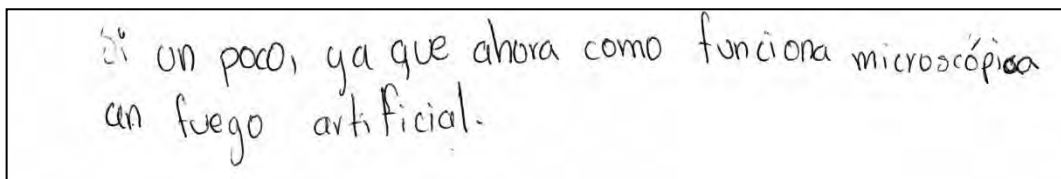 Si un poco, ya que ahora como funciona microscópica
un fuego artificial.